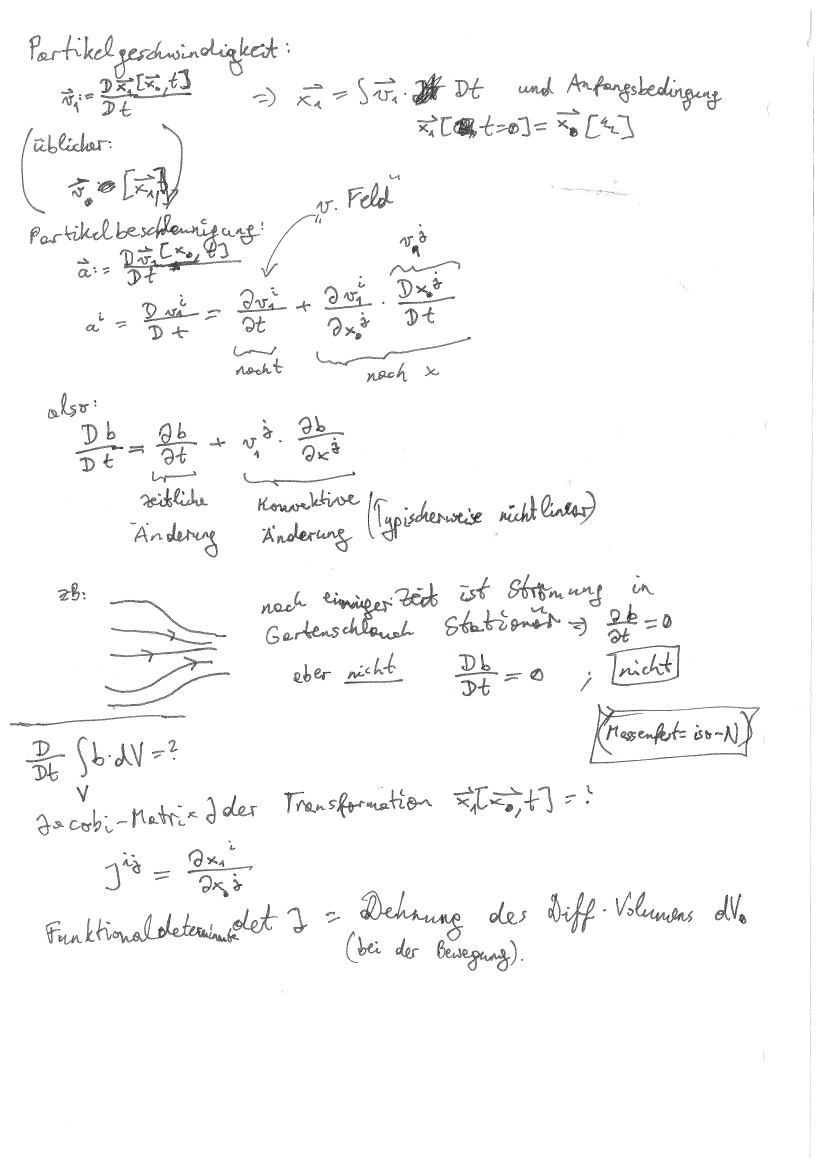 Partikelgeschwindigkeit:
v⃗₁ := Dx⃗₁[x⃗₀, t] / Dt ⇒ x⃗₁ = ∫ v⃗₁ · Dt und Anfangsbedingung
x⃗₁[t=0] = x⃗₀
(üblicher:
v⃗₀ [x⃗₁, t])
"v. Feld"
Partikelbeschleunigung:
a⃗ := Dv⃗₁[x₀, t] / Dt
aⁱ = Dv₁ⁱ / Dt = ∂v₁ⁱ/∂t + ∂v₁ⁱ/∂x₀ʲ · Dx₀ʲ/Dt
v₁ʲ
nach t nach x
also:
Db/Dt = ∂b/∂t + v₁ʲ · ∂b/∂xʲ
zeitliche Konvektive (Typischerweise nichtlinear)
Änderung Änderung
zB: nach einiger Zeit ist Strömung in
Gartenschlauch Stationär ⇒ ∂b/∂t = 0
aber nicht Db/Dt = 0 ; nicht
D/Dt ∫_V b·dV = ?
Jacobi-Matrix J der Transformation x⃗₁[x⃗₀, t] = ?
Jⁱʲ = ∂x₁ⁱ/∂x₀ʲ
Funktionaldeterminante det J = Dehnung des Diff.-Volumens dV₀
(bei der Bewegung).